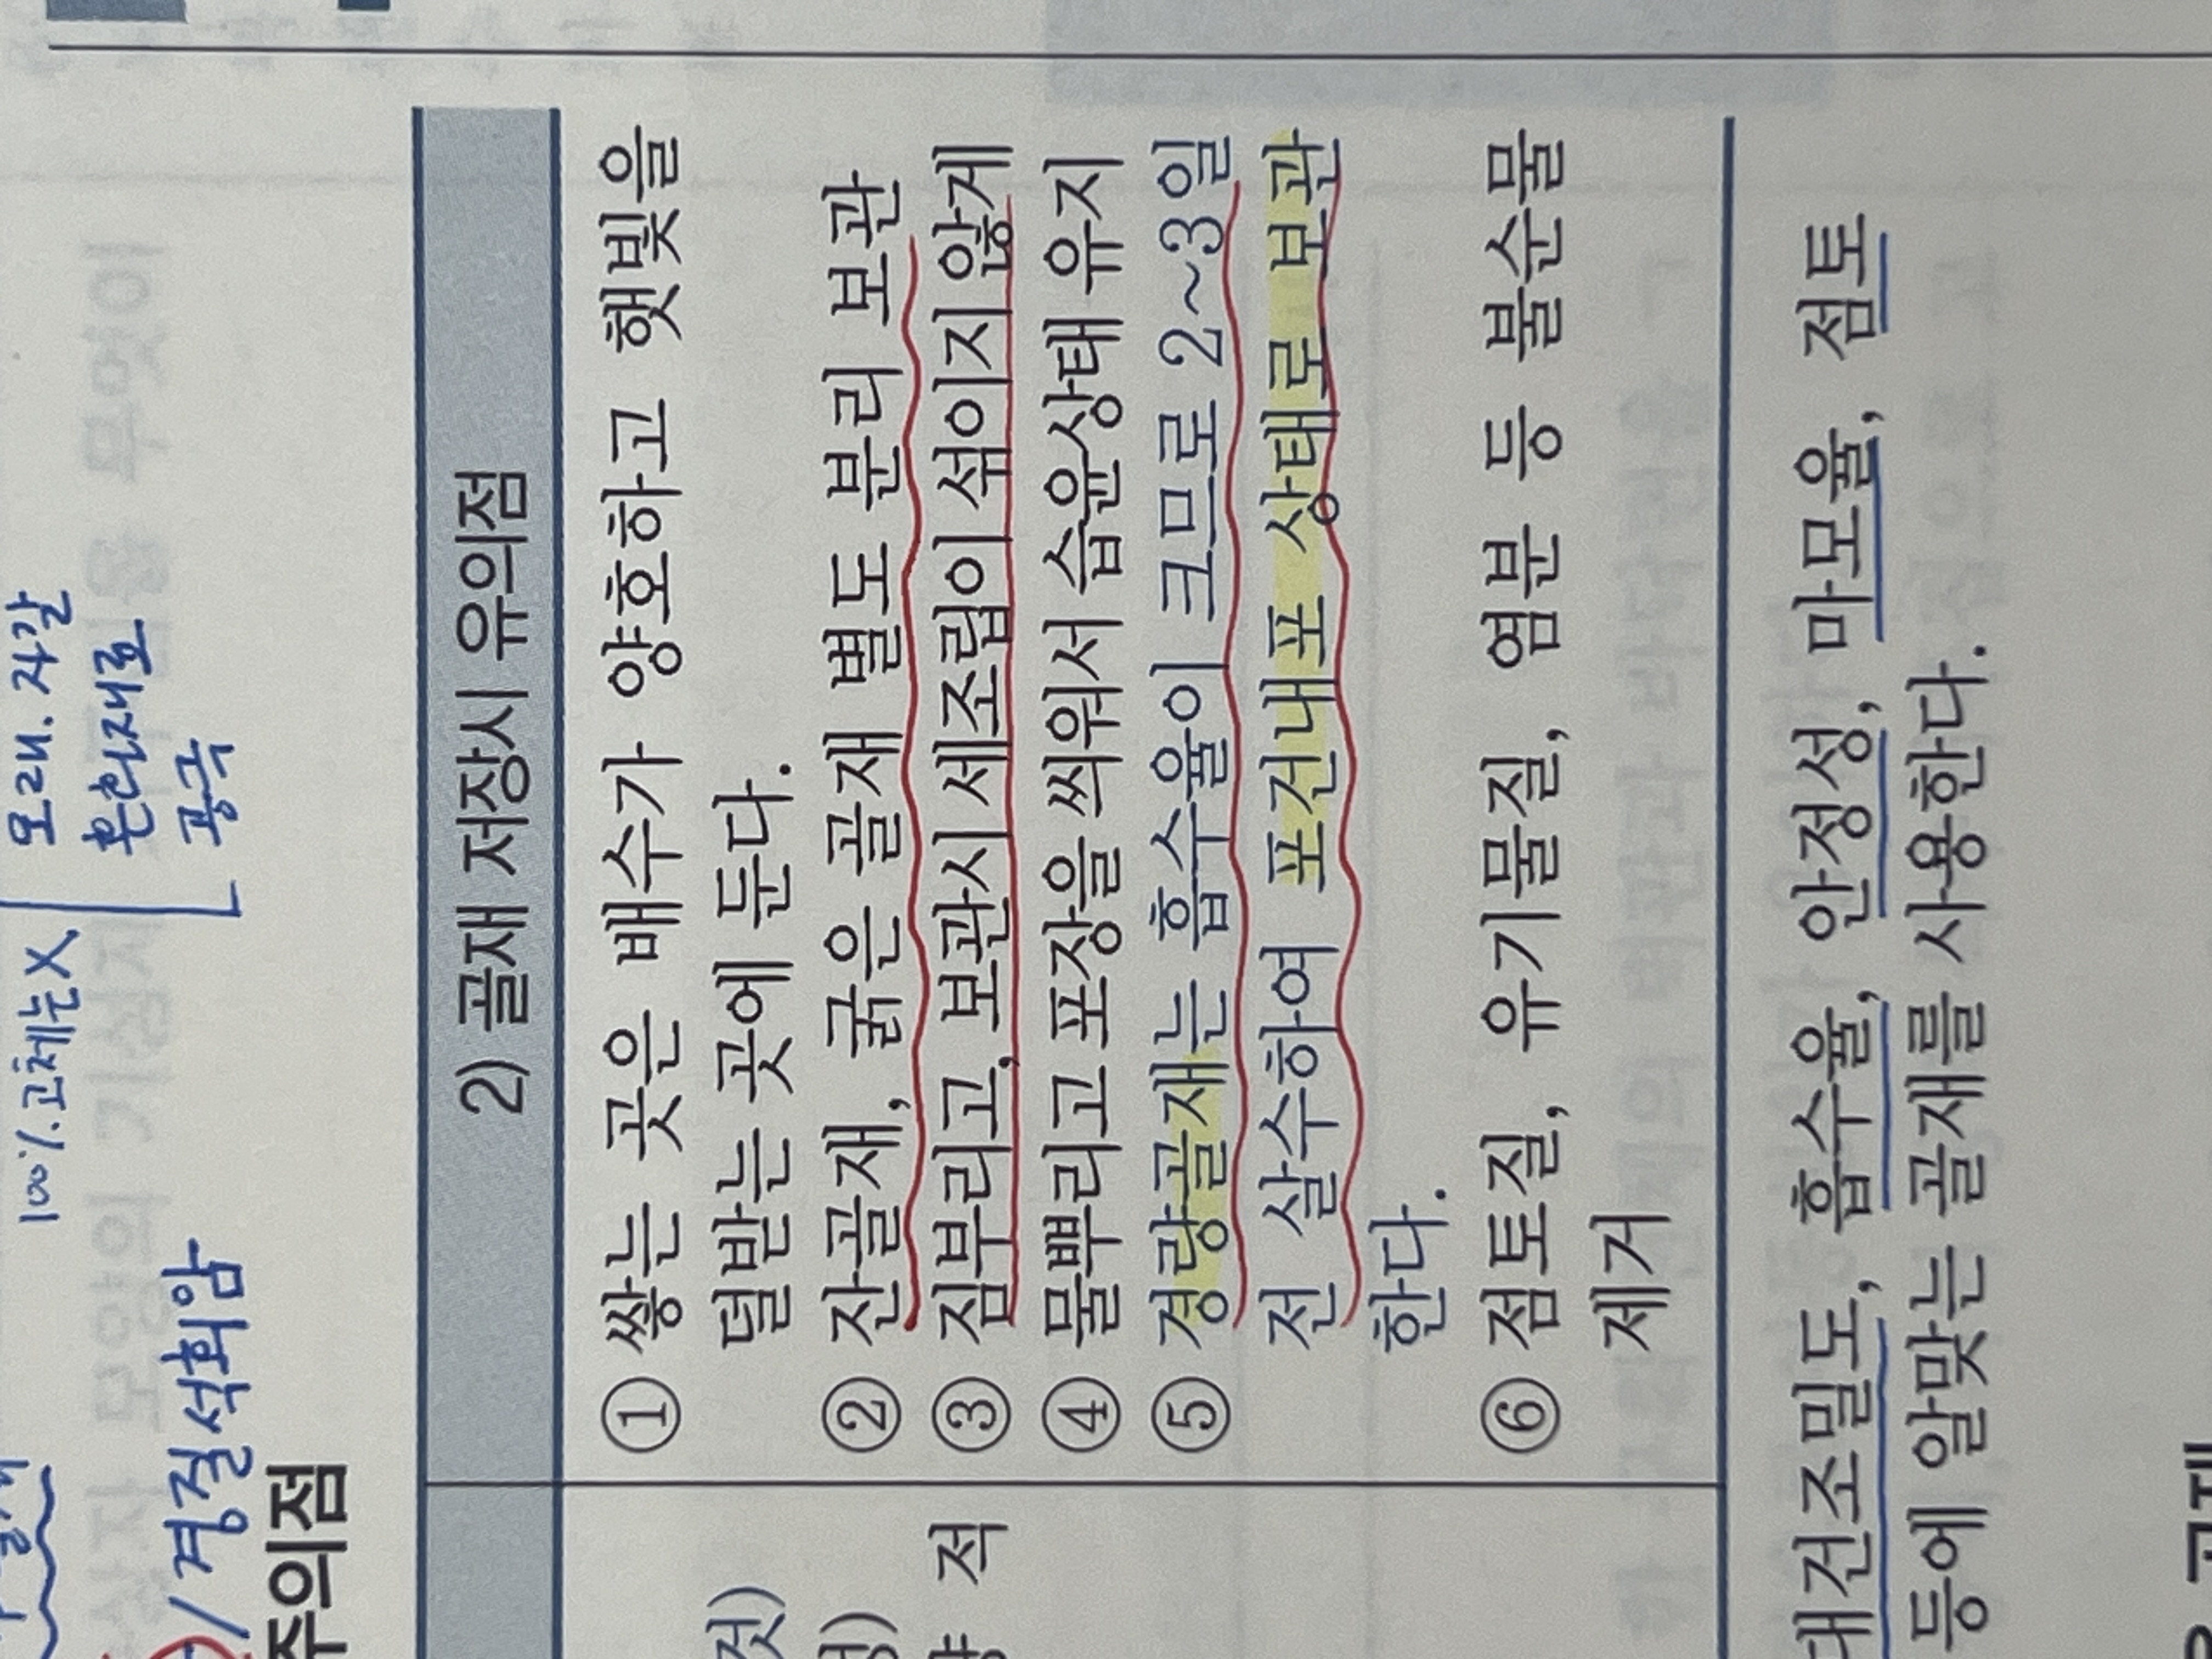 100%.고체는X
모래. 자갈
혼화재료
공극
/경질석회암
주의점
2) 골재 저장시 유의점
① 쌓는 곳은 배수가 양호하고 햇빛을
덜받는 곳에 둔다.
② 잔골재, 굵은 골재 별도 분리 보관
③ 짐부리고, 보관시 세조립이 섞이지 않게
④ 물뿌리고 포장을 씌워서 습윤상태 유지
⑤ 경량골재는 흡수율이 크므로 2~3일
전 살수하여 포건내포 상태로 보관
한다.
⑥ 점토질, 유기물질, 염분 등 불순물
제거
것)
적
대건조밀도, 흡수율, 안정성, 마모율, 점토
등에 알맞는 골재를 사용한다.